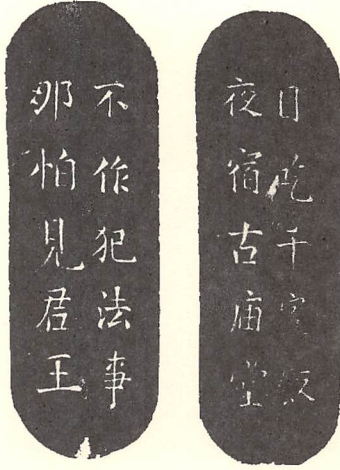 日吃千家饭
夜宿古庙堂
不作犯法事
那怕见君王